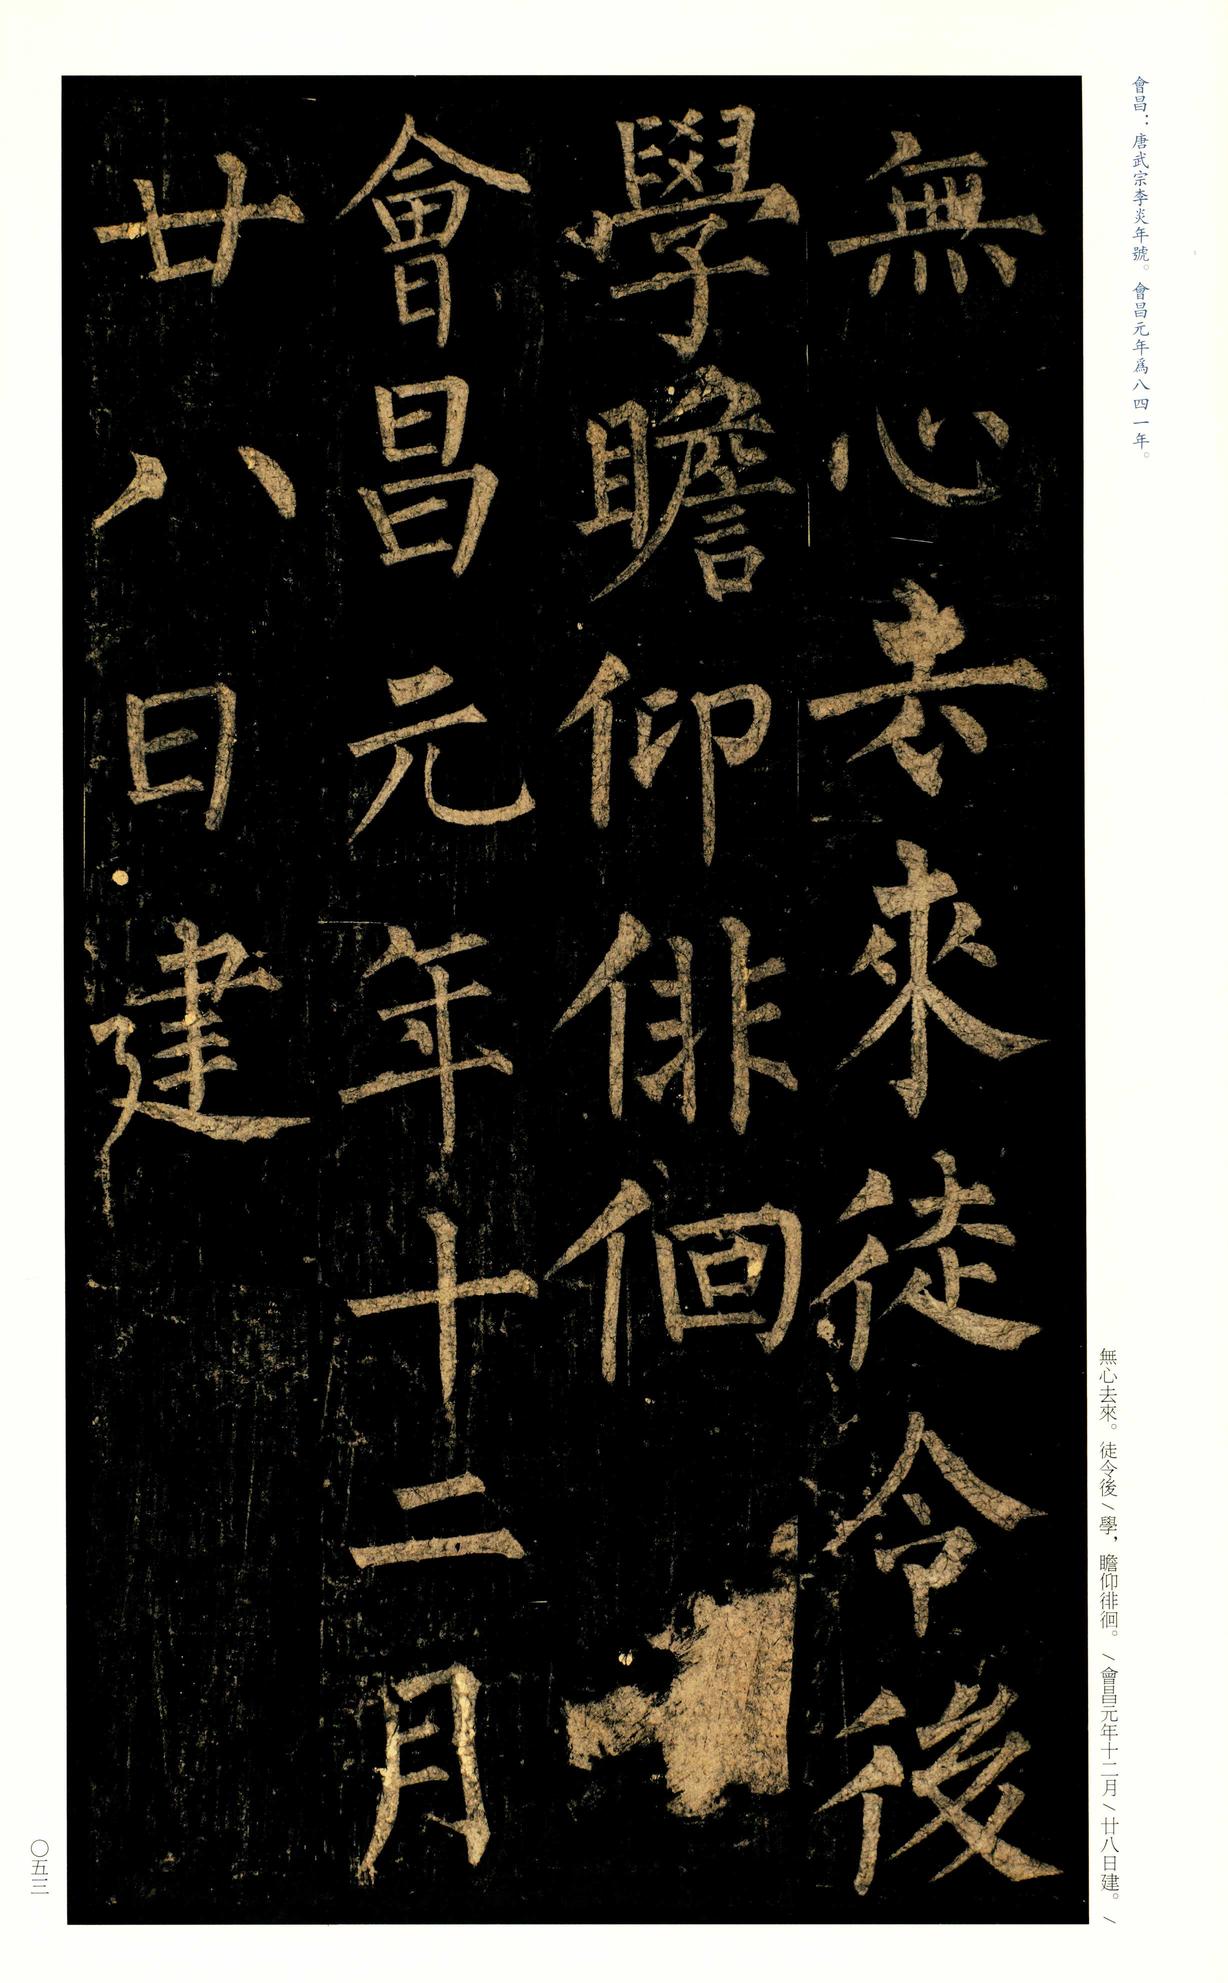 會昌：唐武宗李炎年號。會昌元年爲八四一年。
無心去來。徒令後/學，瞻仰徘徊。/會昌元年十二月/廿八日建。/
無心去來徒令後
學瞻仰俳佪
會昌元年十二月
廿八日建
〇五三